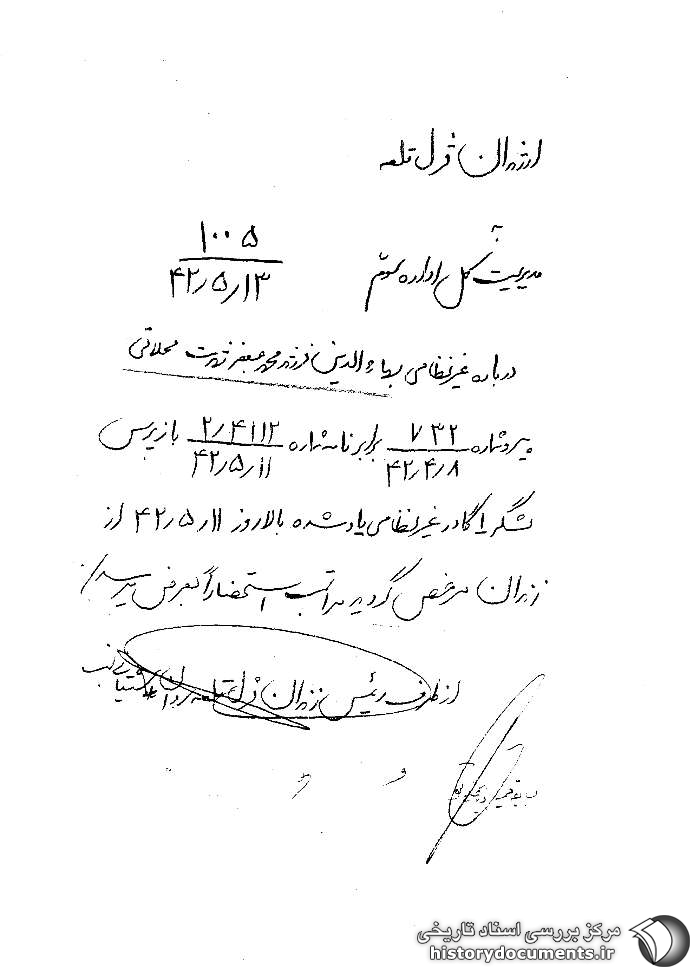 از زندان قزل قلعه
به
مدیریت کل اداره سوم
۱۰۰۵
۴۲/۵/۱۳
درباره غیرنظامی بهاءالدین فرزند محمد جعفر شهرت محلاتی
پیرو شماره ۷۳۲ برابر نامه شماره ۲/۴۱۱۲ بازپرس
۴۲/۴/۸ ۴۲/۵/۱۱
لشگر ۱ گارد غیرنظامی یادشده بالا روز ۴۲/۵/۱۱ از
زندان مرخص گردید مراتب استحضاراً بعرض میرسد/
از طرف رئیس زندان قزل قلعه
مرکز بررسی اسناد تاریخی
historydocuments.ir